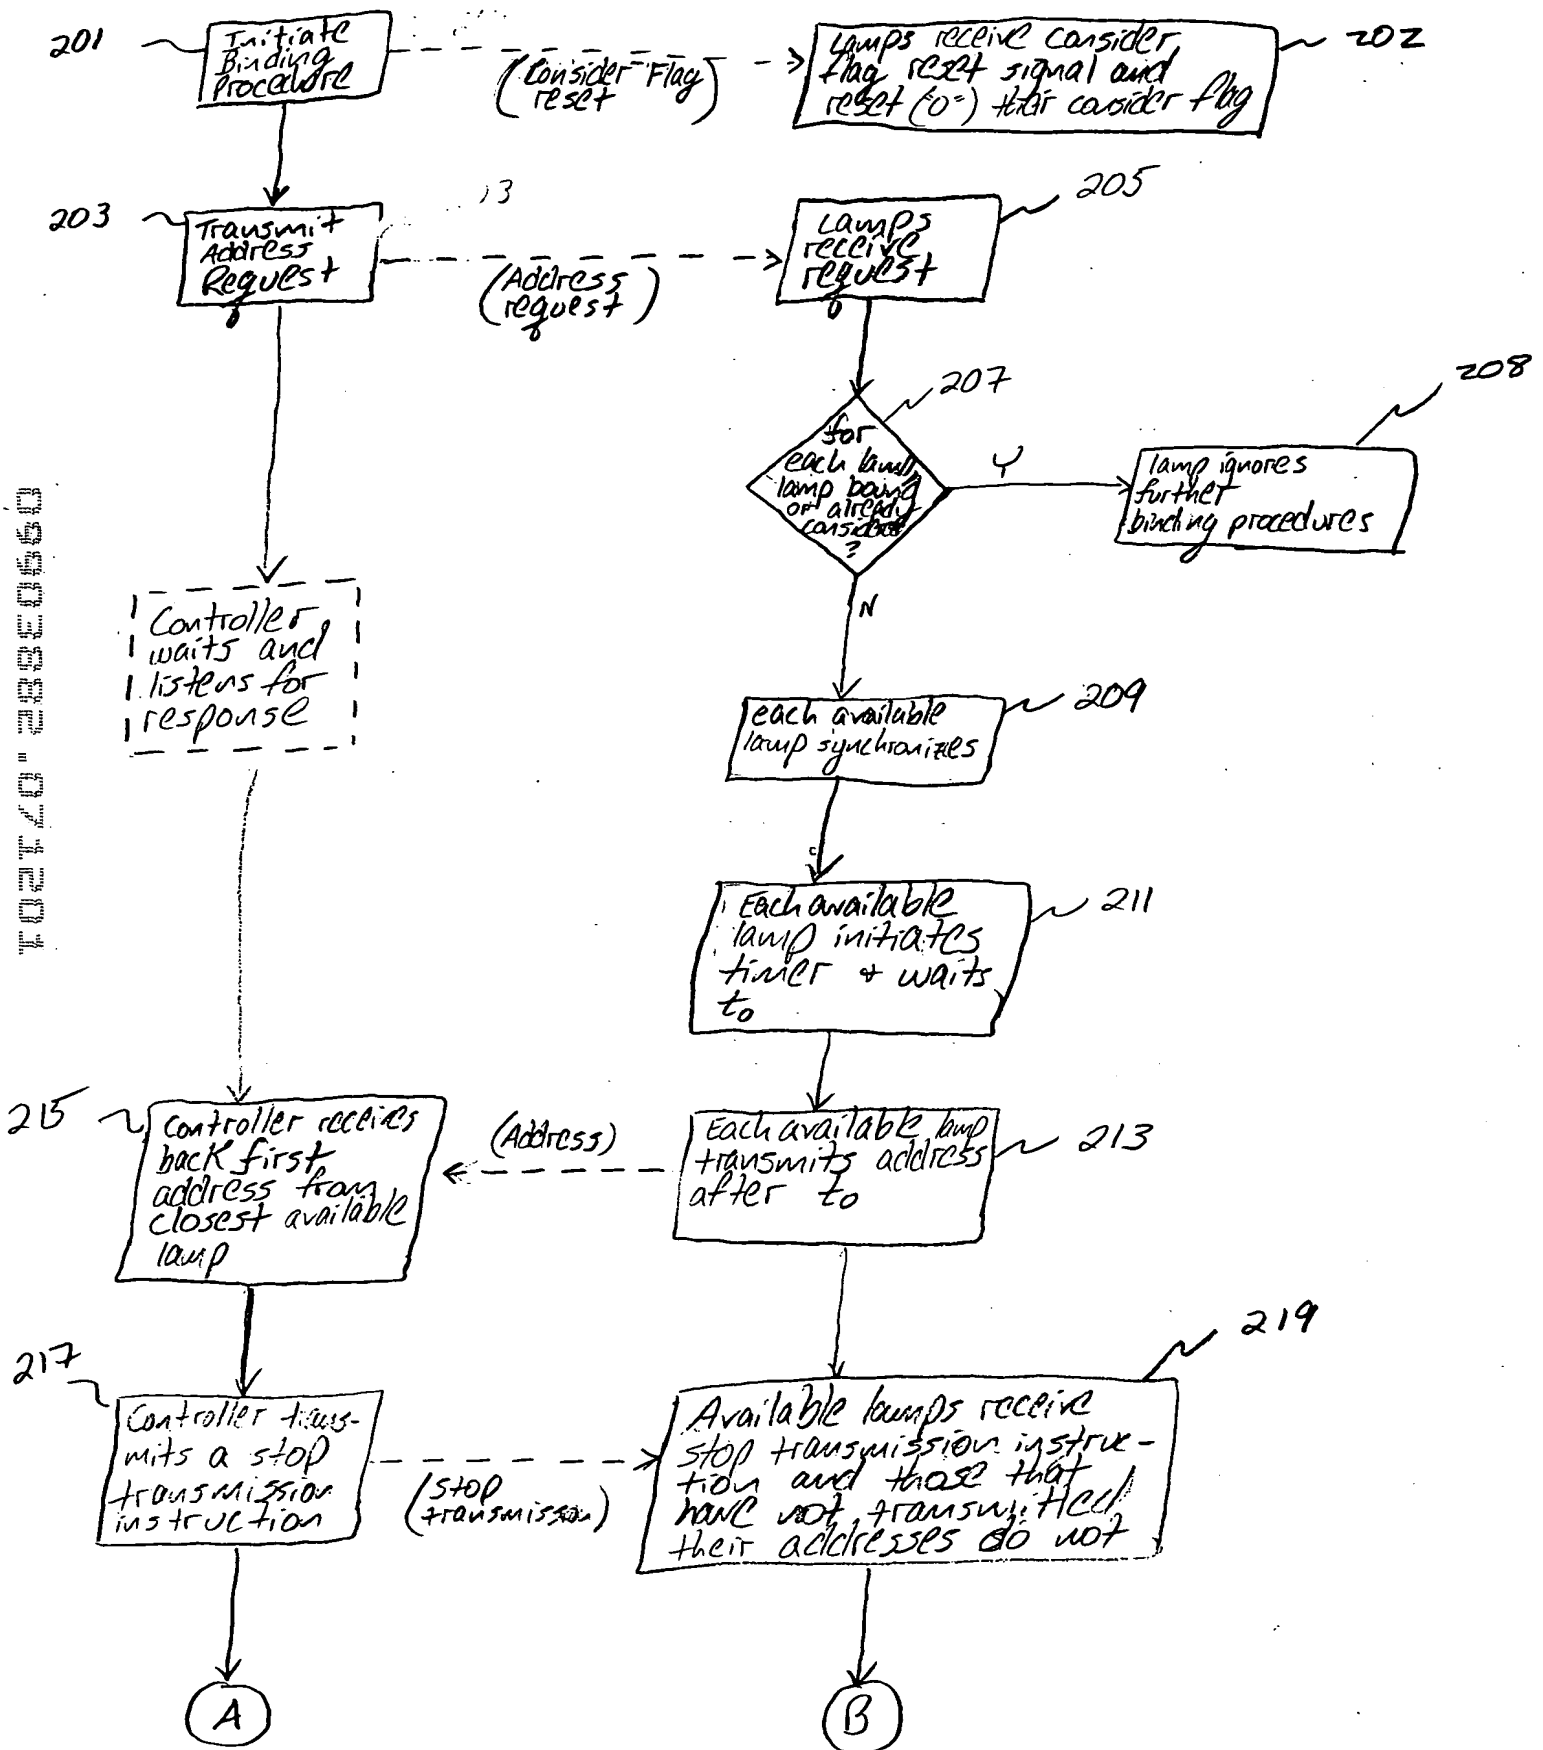 201
Initiate
Binding
Procedure
(Consider Flag
reset)
Lamps receive consider
flag reset signal and
reset ("0") their consider flag
202
203
Transmit
Address
Request
13
(Address
request)
Lamps
receive
request
205
207
for
each lamp,
lamp bound
or already
considered
?
Y
208
lamp ignores
further
binding procedures
N
Controller
waits and
listens for
response
each available
lamp synchronizes
209
Each available
lamp initiates
timer & waits
to
211
215
Controller receives
back first
address from
closest available
lamp
(Address)
Each available lamp
transmits address
after to
213
217
Controller trans-
mits a stop
transmission
instruction
(stop
transmission)
219
Available lamps receive
stop transmission instruc-
tion and those that
have not transmitted
their addresses do not
A
B
09903882.071201